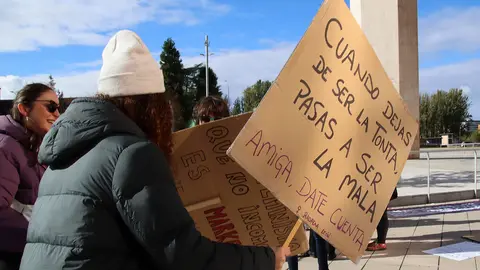 CUANDO DEJAS
DE SER LA TONTA
PASAS A SER
LA MALA
AMIGA, DATE CUENTA
ES
QUE NO
INCOMO
MARK